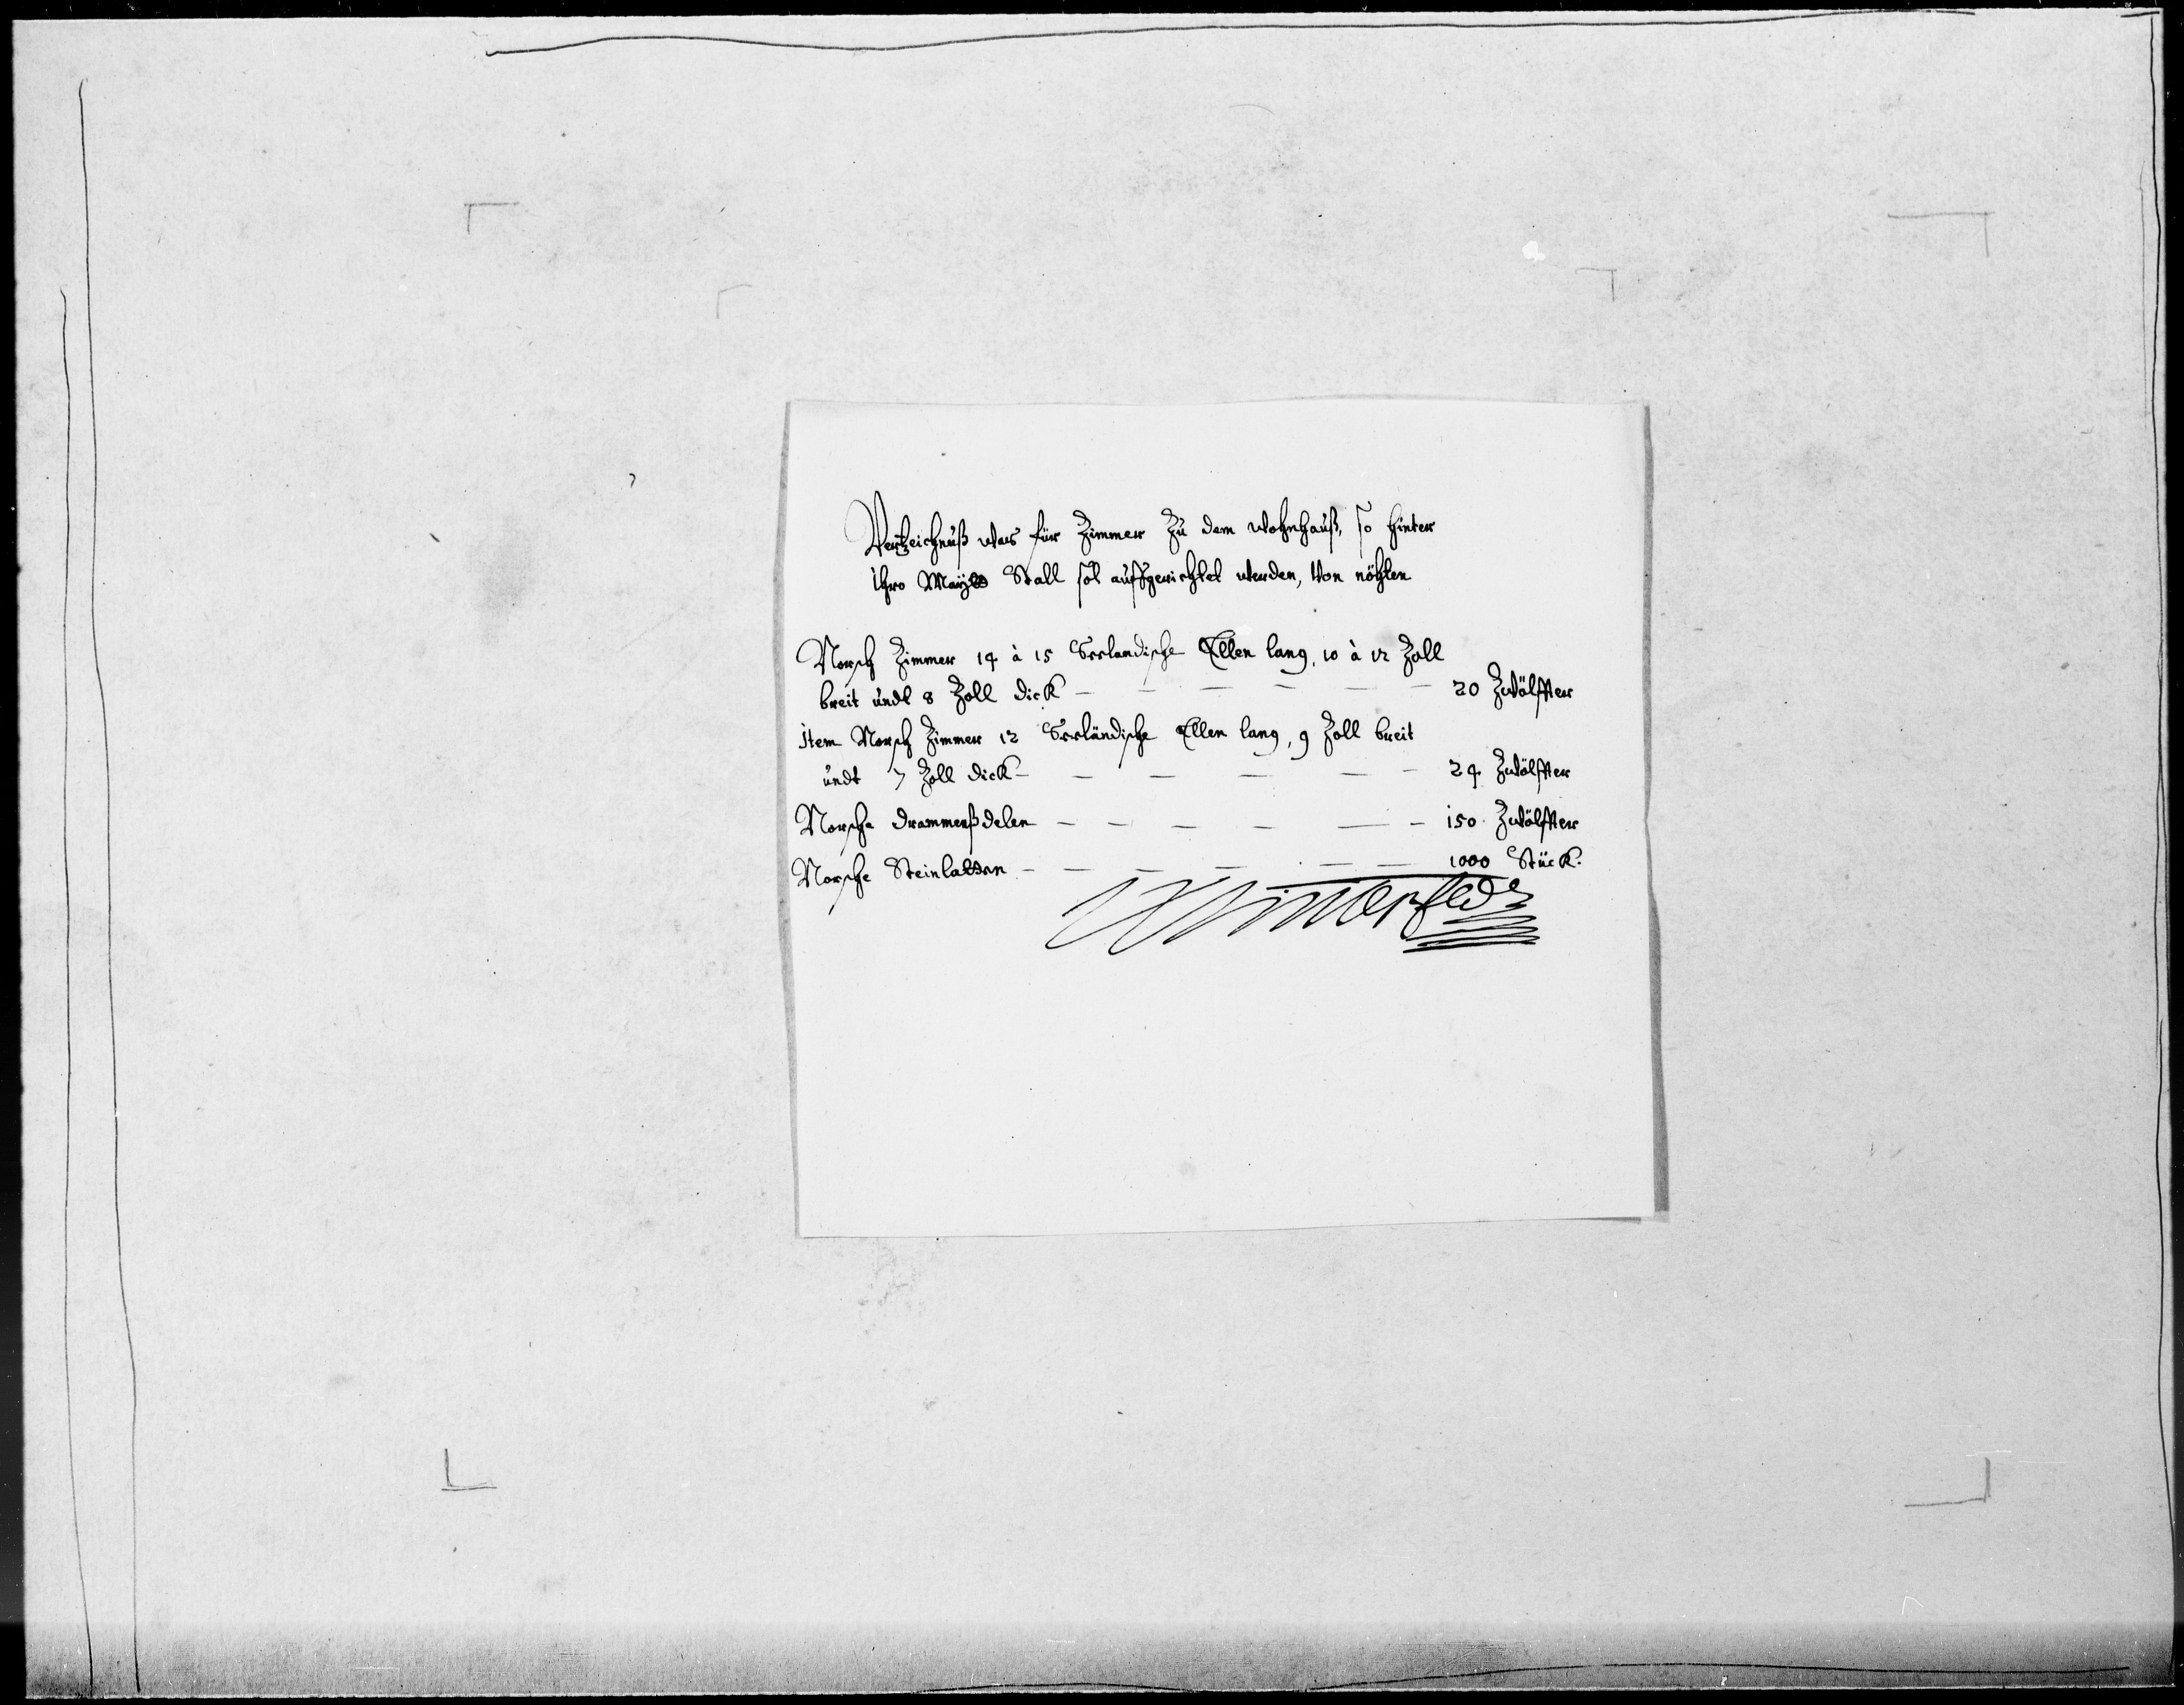 Vertzeichnuß was für Zimmer Zu dem wohnhauß, so hinter
ihro Mayt. Stall sol auffgerichtet werden, Von nöhten
Norsch Zimmer 14 à 15 Seelandische Ellen lang, 10 à 12 Zoll
breit undt 8 Zoll dick — — — — — — 20 Zwölffter
item Norsch Zimmer 12 Seeländische Ellen lang, 9 Zoll breit
undt 7 Zoll dick — — — — — — 24 Zwölffter
Norsche drammenßdelen — — — — — — 150 Zwölffter
Norsche Steinlatten — — — — — — 1000 Stück.
Winterfeldt